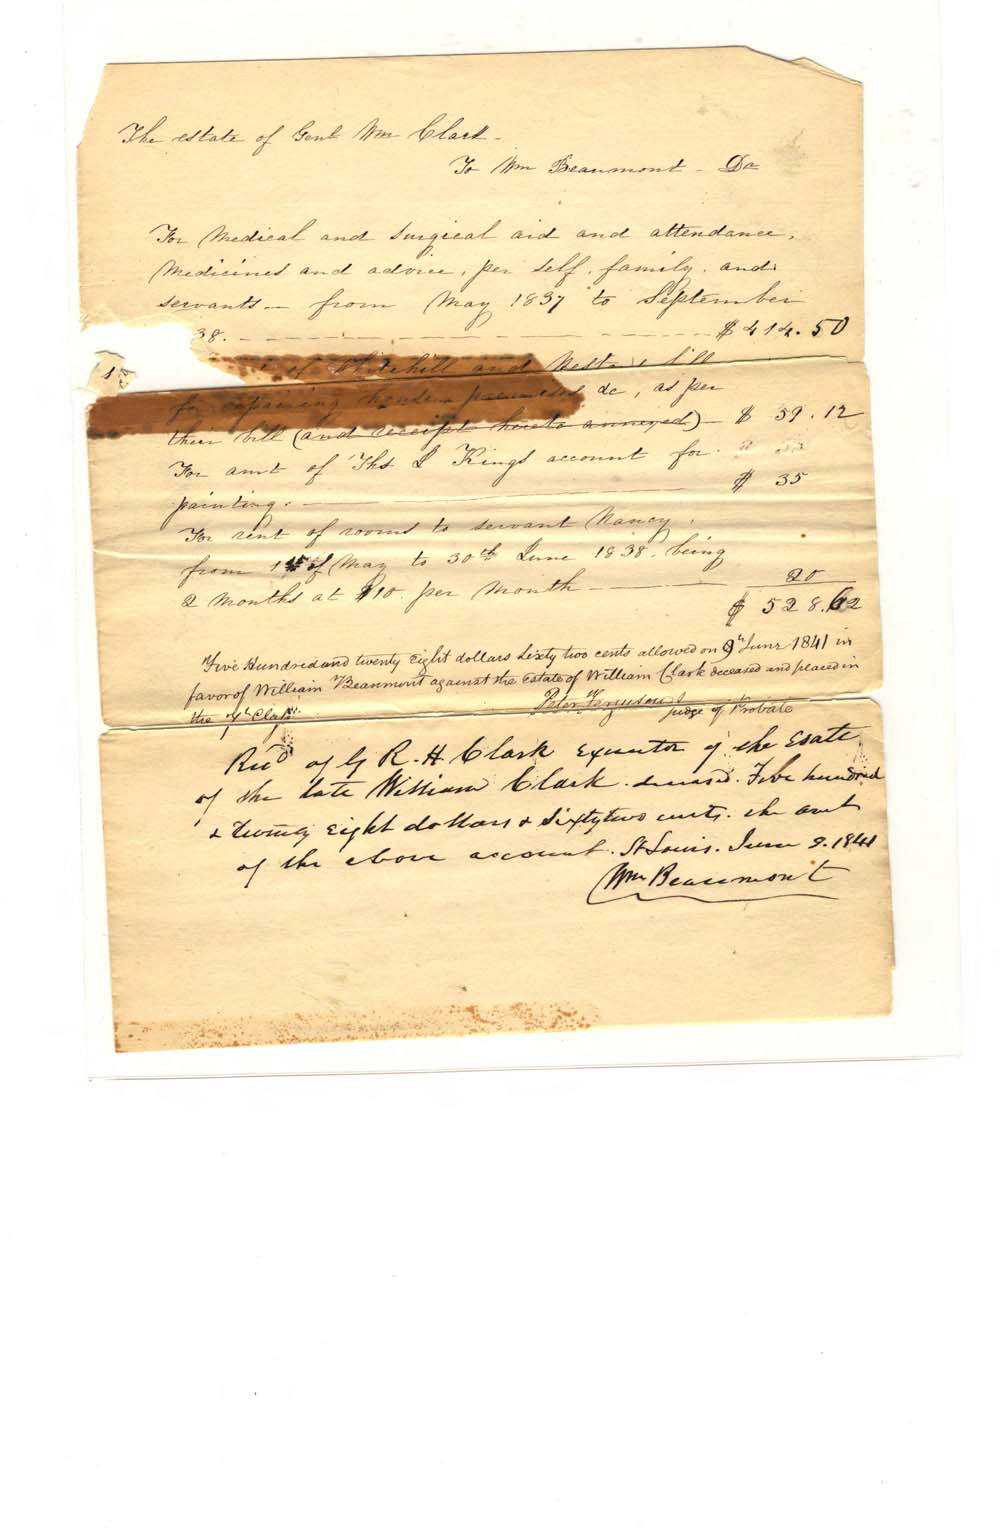 The estate of Genl Wm Clark -
To Wm Beaumont - Dr
For Medical and Surgical aid and attendance,
Medicines and advice, per self, family, and
servants — from May 1837 to September
38. $414.50
of Mitchell and bill
for repairing house &c, as per
their bill (and receipt hereto annexed) — $ 59.12
For amt of Ths J Kings account for
painting. $ 35
For rent of rooms to servant Nancy,
from 1st of May to 30th June 1838. being
2 months at $10. per month — 20
$ 528.62
Five Hundred and twenty Eight dollars Sixty two cents allowed on 9th June 1841 in
favor of William Beaumont against the Estate of William Clark deceased and placed in
the Class.
Peter Ferguson Judge of Probate
Recd of G R. H Clark Executor of the Esate
of the late William Clark. deceased. Five hundred
& twenty Eight dollars & Sixty two cents. the amt
of the above account. St Louis. June 9. 1841
Wm Beaumont